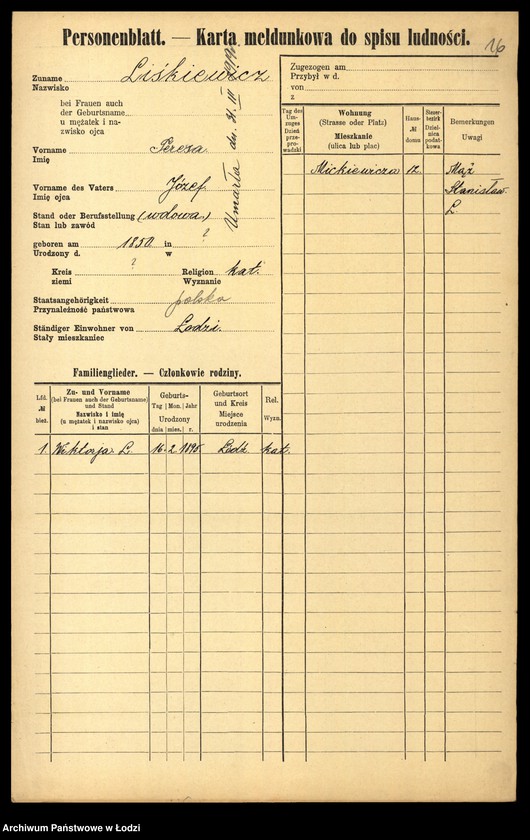 Personenblatt. — Karta meldunkowa do spisu ludności.
16
Zuname Liśkiewicz
Nazwisko
bei Frauen auch
der Geburtsname
u mężatek i na-
zwisko ojca
Vorname Teresa
Imię
Vorname des Vaters Józef
Imię ojca
Stand oder Berufsstellung (wdowa)
Stan lub zawód
geboren am 1850 in ?
Urodzony d. w
Kreis ? Religion kat.
ziemi Wyznanie
Staatsangehörigkeit polska
Przynależność państwowa
Ständiger Einwohner von Łodzi.
Stały mieszkaniec
Umarła dn. 31. III
Zugezogen am
Przybył w d.
von
z
Tag des
Um-
zuges
Dzień
prze-
prowadzki
Wohnung
(Strasse oder Platz)
Mieszkanie
(ulica lub plac)
Haus-
№
domu
Steuer-
bezirk
Dziel-
nica
podat-
kowa
Bemerkungen
Uwagi
Mickiewicza 12. Mąż
Stanisław
L.
Familienglieder. — Członkowie rodziny.
Lfd.
№
bież.
Zu- und Vorname
(bei Frauen auch der Geburtsname)
und Stand
Nazwisko i imię
(u mężatek i nazwisko ojca)
i stan
Geburts-
Tag Mon. Jahr
Urodzony
dnia mies. r.
Geburtsort
und Kreis
Miejsce
urodzenia
Rel.
Wyzn.
1 Wiktorja L. 16. 2. 1898. Łódź kat.
Archiwum Państwowe w Łodzi